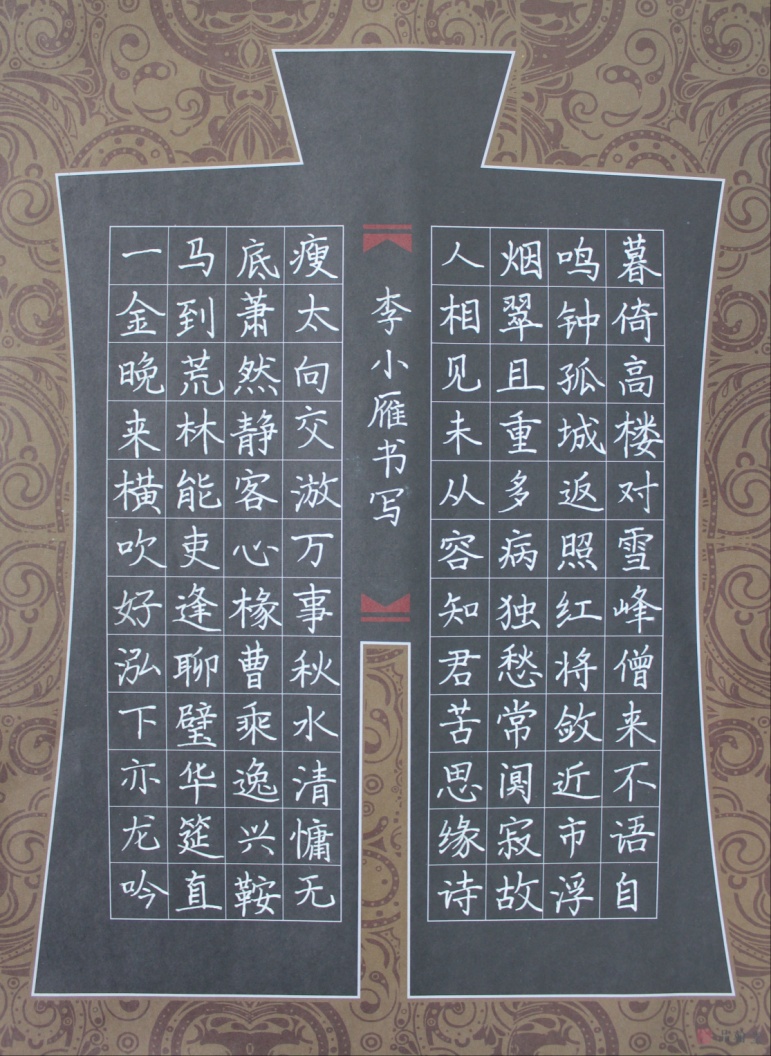 暮倚高楼对雪峰僧来不语自
鸣钟孤城返照红将敛近市浮
烟翠且重多病独愁常阒寂故
人相见未从容知君苦思缘诗
李小雁书写
瘦太向交游万事秋水清慵无
底萧然静客心椽曹乘逸兴鞍
马到荒林能吏逢聊璧华筵直
一金晚来横吹好泓下亦龙吟